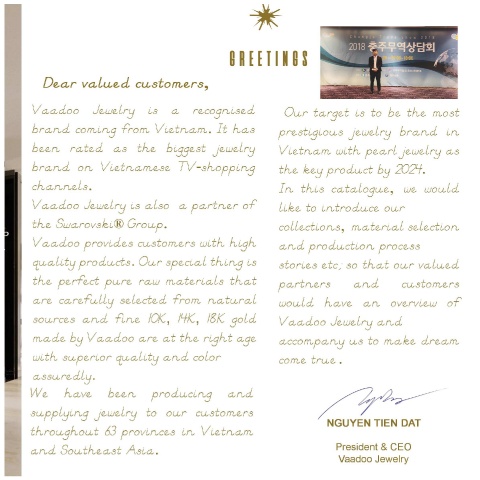 GREETINGS
Dear valued customers,
Vaadoo Jewelry is a recognised
brand coming from Vietnam. It has
been rated as the biggest jewelry
brand on Vietnamese TV-shopping
channels.
Vaadoo Jewelry is also a partner of
the Swarovski® Group.
Vaadoo provides customers with high
quality products. Our special thing is
the perfect pure raw materials that
are carefully selected from natural
sources and fine 10K, 14K, 18K gold
made by Vaadoo are at the right age
with superior quality and color
assuredly.
We have been producing and
supplying jewelry to our customers
throughout 63 provinces in Vietnam
and Southeast Asia.
2018 충주무역상담회
Our target is to be the most
prestigious jewelry brand in
Vietnam with pearl jewelry as
the key product by 2024.
In this catalogue, we would
like to introduce our
collections, material selection
and production process
stories etc; so that our valued
partners and customers
would have an overview of
Vaadoo Jewelry and
accompany us to make dream
come true.
NGUYEN TIEN DAT
President & CEO
Vaadoo Jewelry